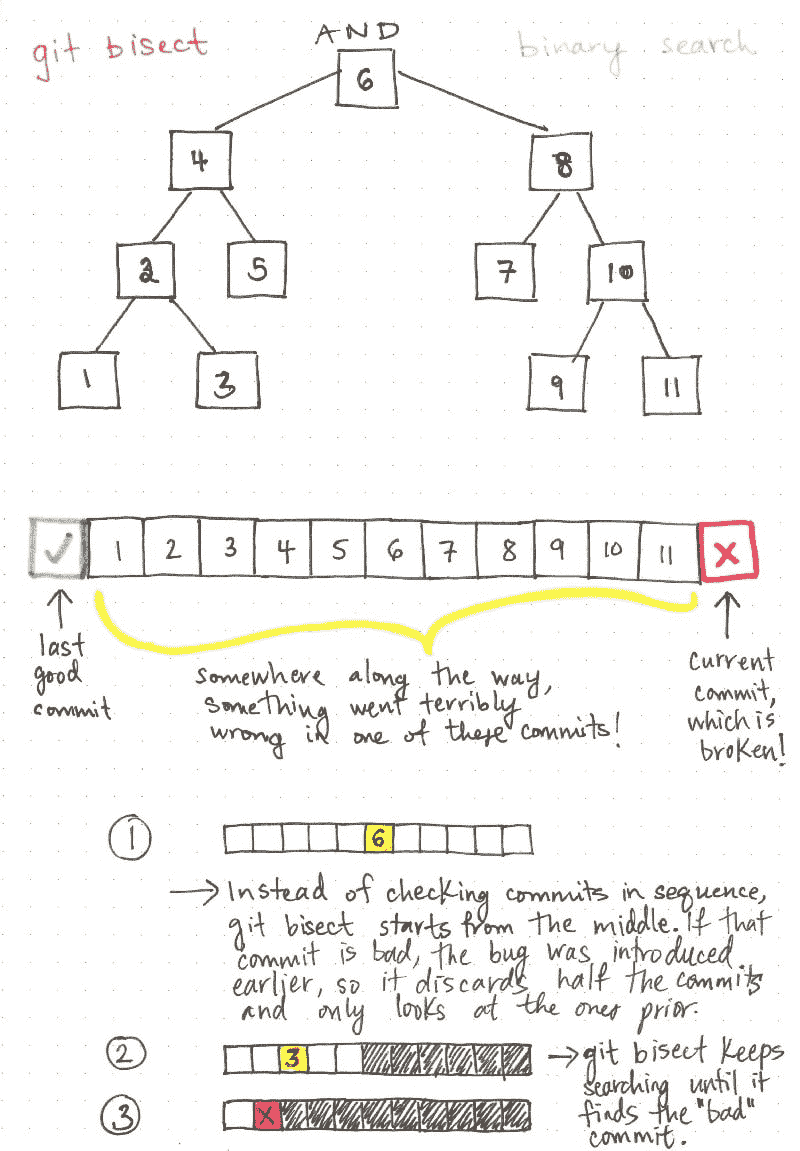 git bisect AND binary search
6
4 8
2 5 7 10
1 3 9 11
✓ 1 2 3 4 5 6 7 8 9 10 11 X
last
good
commit
somewhere along the way,
something went terribly
wrong in one of these commits!
current
commit,
which is
broken!
1 6
→ Instead of checking commits in sequence,
git bisect starts from the middle. If that
commit is bad, the bug was introduced
earlier, so it discards half the commits
and only looks at the ones prior.
2 3
→ git bisect keeps
searching until it
finds the "bad"
commit.
3 X